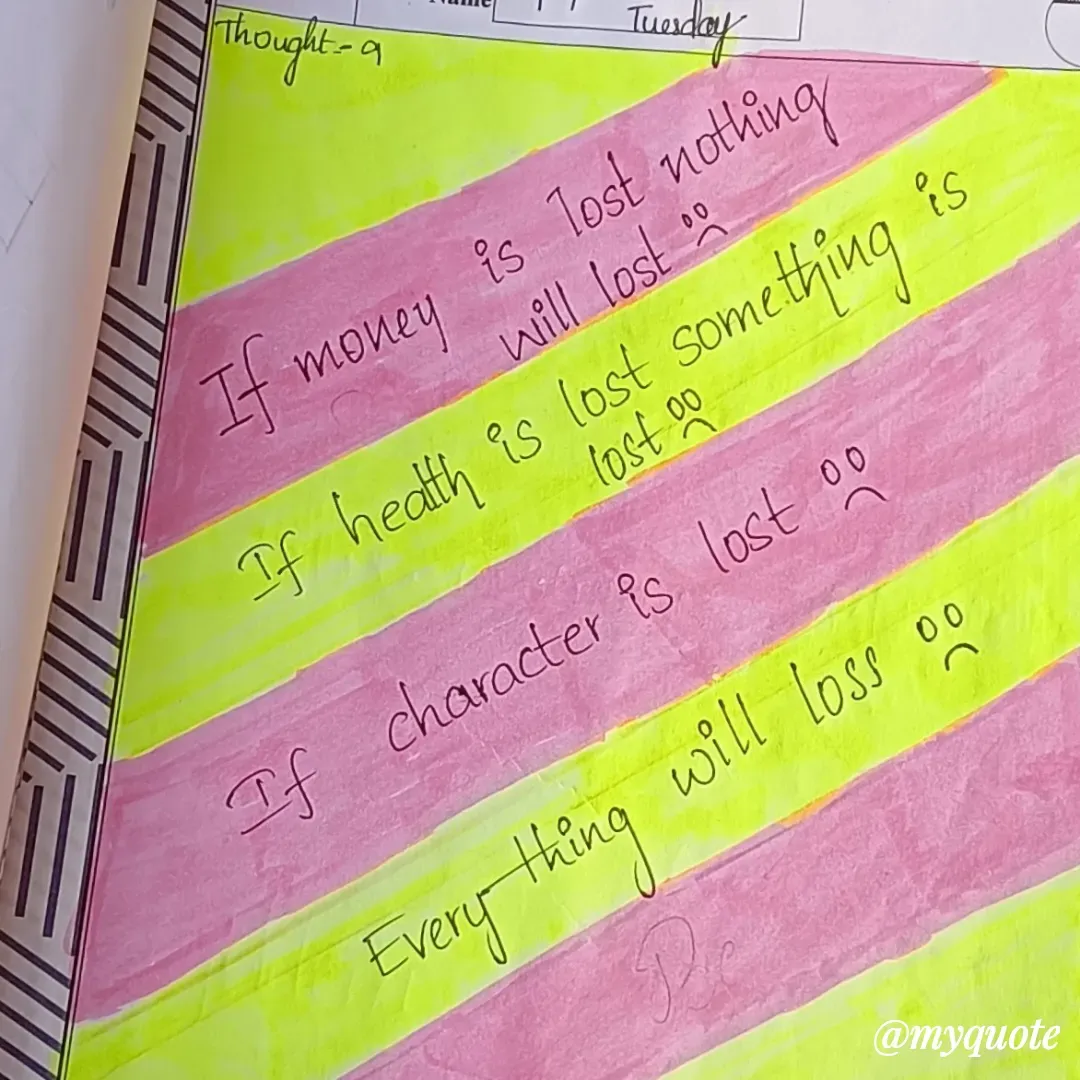 Name
Tuesday
Thought - 9
If money is lost nothing
will lost
If health is lost something is
lost
If character is lost
Every thing will loss
@myquote